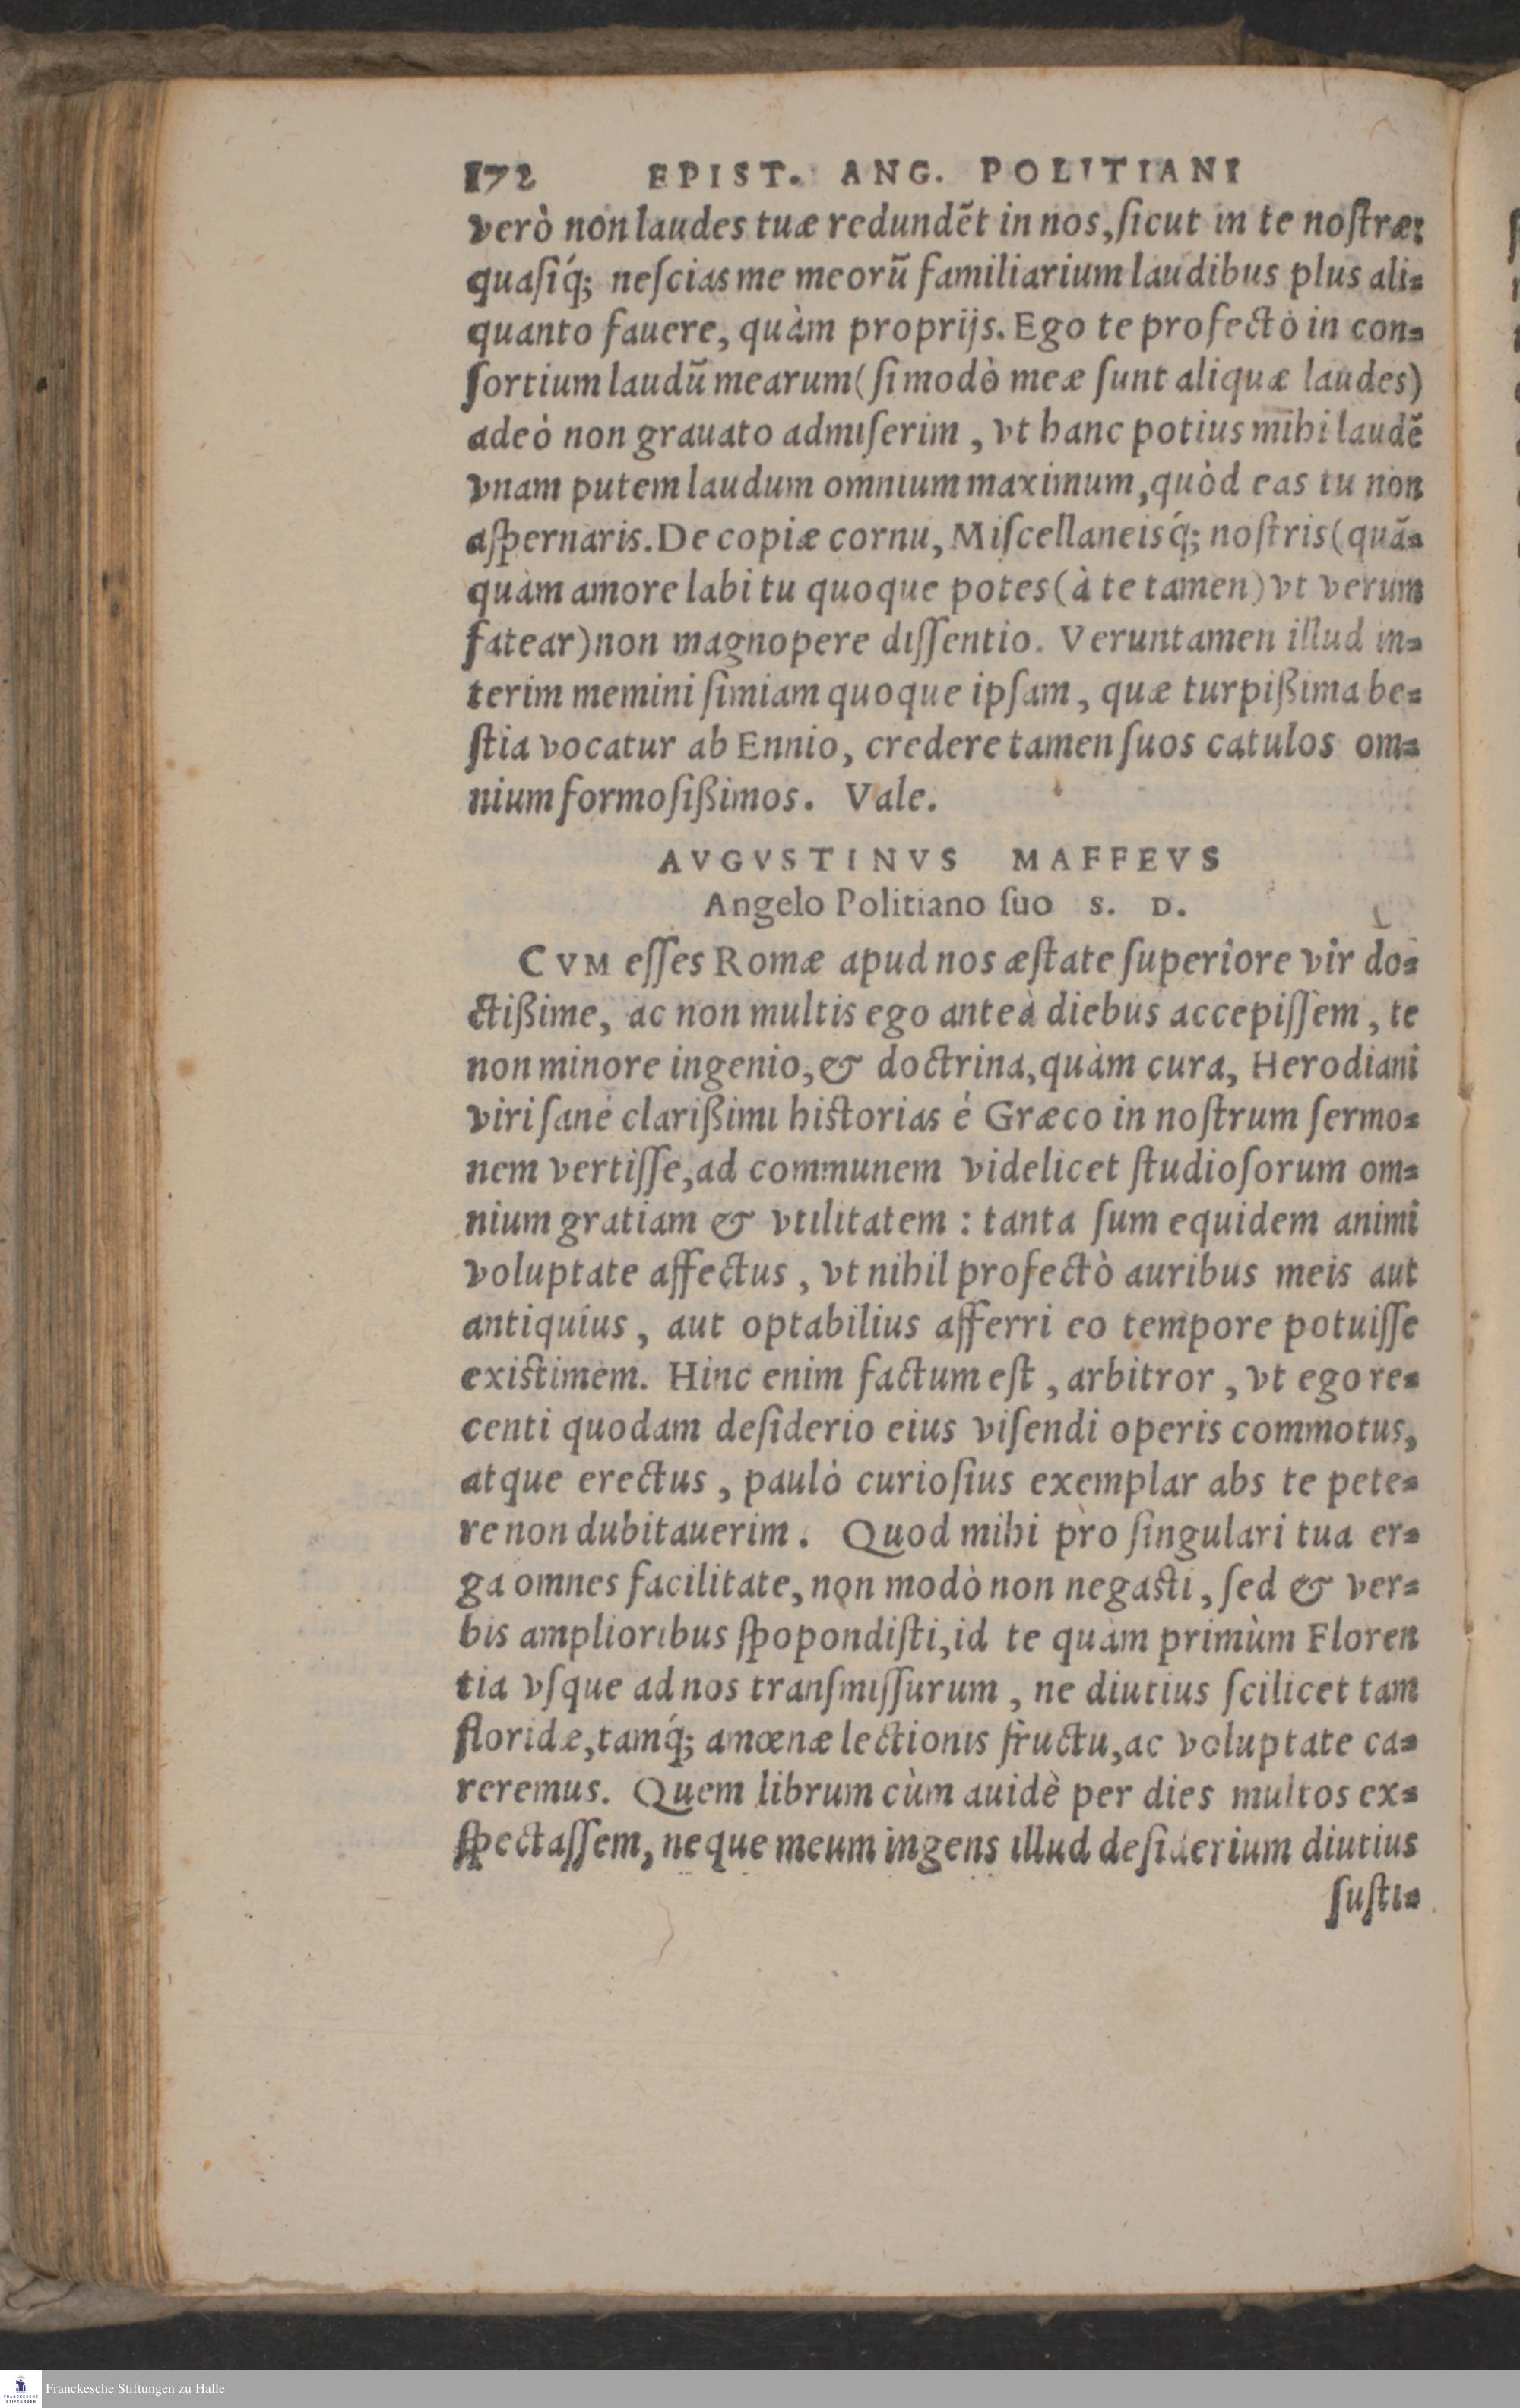 172 EPIST. ANG. POLITIANI
verò non laudes tuæ redundẽt in nos, ſicut in te noſtræ:
quaſiq́; neſcias me meorũ familiarium laudibus plus ali-
quanto fauere, quàm proprijs. Ego te profectò in con-
ſortium laudũ mearum (ſi modò meæ ſunt aliquæ laudes)
adeò non grauato admiſerim, vt hanc potius mihi laudẽ
vnam putem laudum omnium maximum, quòd eas tu non
aſpernaris. De copiæ cornu, Miſcellaneisq́; noſtris (quã-
quàm amore labi tu quoque potes (à te tamen) vt verum
fatear) non magnopere diſſentio. Veruntamen illud in-
terim memini ſimiam quoque ipſam, quæ turpißima be-
ſtia vocatur ab Ennio, credere tamen ſuos catulos om-
nium formoſißimos. Vale.
AVGVSTINVS MAFFEVS
Angelo Politiano ſuo S. D.
CVM eſſes Romæ apud nos æſtate ſuperiore vir do-
ctißime, ac non multis ego anteà diebus accepiſſem, te
non minore ingenio, & doctrina, quàm cura, Herodiani
viri ſanè clarißimi hiſtorias è Græco in noſtrum ſermo-
nem vertiſſe, ad communem videlicet ſtudioſorum om-
nium gratiam & vtilitatem : tanta ſum equidem animi
voluptate affectus, vt nihil profectò auribus meis aut
antiquius, aut optabilius afferri eo tempore potuiſſe
exiſtimem. Hinc enim factum eſt, arbitror, vt ego re-
centi quodam deſiderio eius viſendi operis commotus,
atque erectus, paulò curioſius exemplar abs te pete-
re non dubitauerim. Quod mihi pro ſingulari tua er-
ga omnes facilitate, non modò non negaſti, ſed & ver-
bis amplioribus ſpopondiſti, id te quàm primùm Floren
tia vſque ad nos tranſmiſſurum, ne diutius ſcilicet tam
floridæ, tamq́; amœnæ lectionis fructu, ac voluptate ca-
reremus. Quem librum cùm auidè per dies multos ex-
ſpectaſſem, neque meum ingens illud deſiderium diutius
ſuſti-
FRANCKESCHE STIFTUNGEN
Franckesche Stiftungen zu Halle